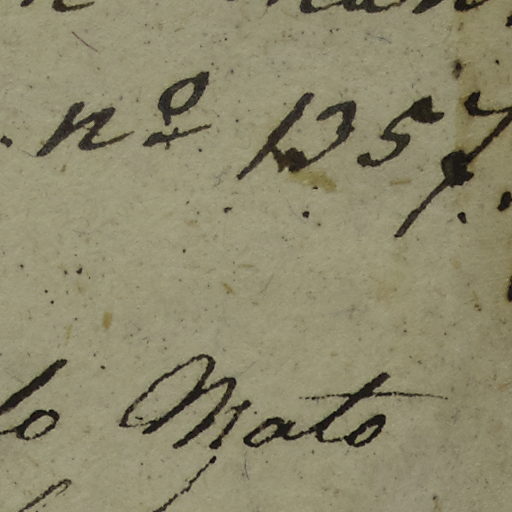 nº 1357.
lo Mato